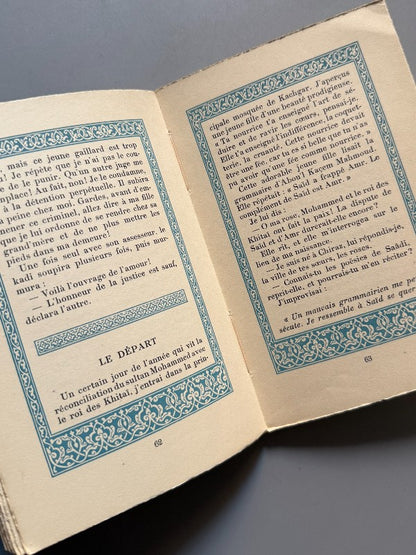 ! mais ce jeune gaillard est trop
Je répète que je n'ai pas le cou-
de le punir. Qu'un autre juge me
mplace! Au fait, non! Je le condamne,
à la détention perpétuelle. Il subira
peine chez moi. Gardes, avant d'em-
ner ce criminel, allez dire à ma fille
que je lui ordonne de se rendre chez sa
grand'mère et de ne plus mettre les
pieds dans ma demeure!
Une fois seul avec son assesseur, le
kadi soupira plusieurs fois, puis mur-
mura :
— Voilà l'ouvrage de l'amour!
— L'honneur de la justice est sauf,
déclara l'autre.
LE DÉPART
Un certain jour de l'année qui vit la
réconciliation du sultan Mohammed avec
le roi des Khitaï, j'entrai dans la prin-
62
cipale mosquée de Kachgar. J'aperçus
une jeune fille d'une beauté prodigieuse.
« Ta nourrice t'a enseigné l'art de sé-
duire et de ravir les cœurs, pensai-je.
Elle t'a enseigné l'indifférence, la coquet-
terie, la cruauté. Cette nourrice devait
être une fée, car si belle que tu n'as
pu avoir qu'une fée comme nourrice. »
Cette splendide jeune fille lisait la
grammaire d'Aboul'l Kacem Mahmoud.
Elle répétait : « Saïd a frappé Amr. Le
complément de Saïd est Amr. »
— O ma rose, Mohammed et le roi des
Khitaï ont fait la paix! La dispute de
Saïd et d'Amr durerait-elle encore?
Elle rit, et elle m'interrogea sur le
lieu de ma naissance.
— Je suis né à Chiraz, lui répondis-je,
la ville de tes sœurs, les roses.
— Connais-tu les poésies de Saâdi,
reprit-elle, et pourrais-tu m'en réciter?
J'improvisai :
« Un mauvais grammairien me per-
sécute. Je ressemble à Saïd se que-
63